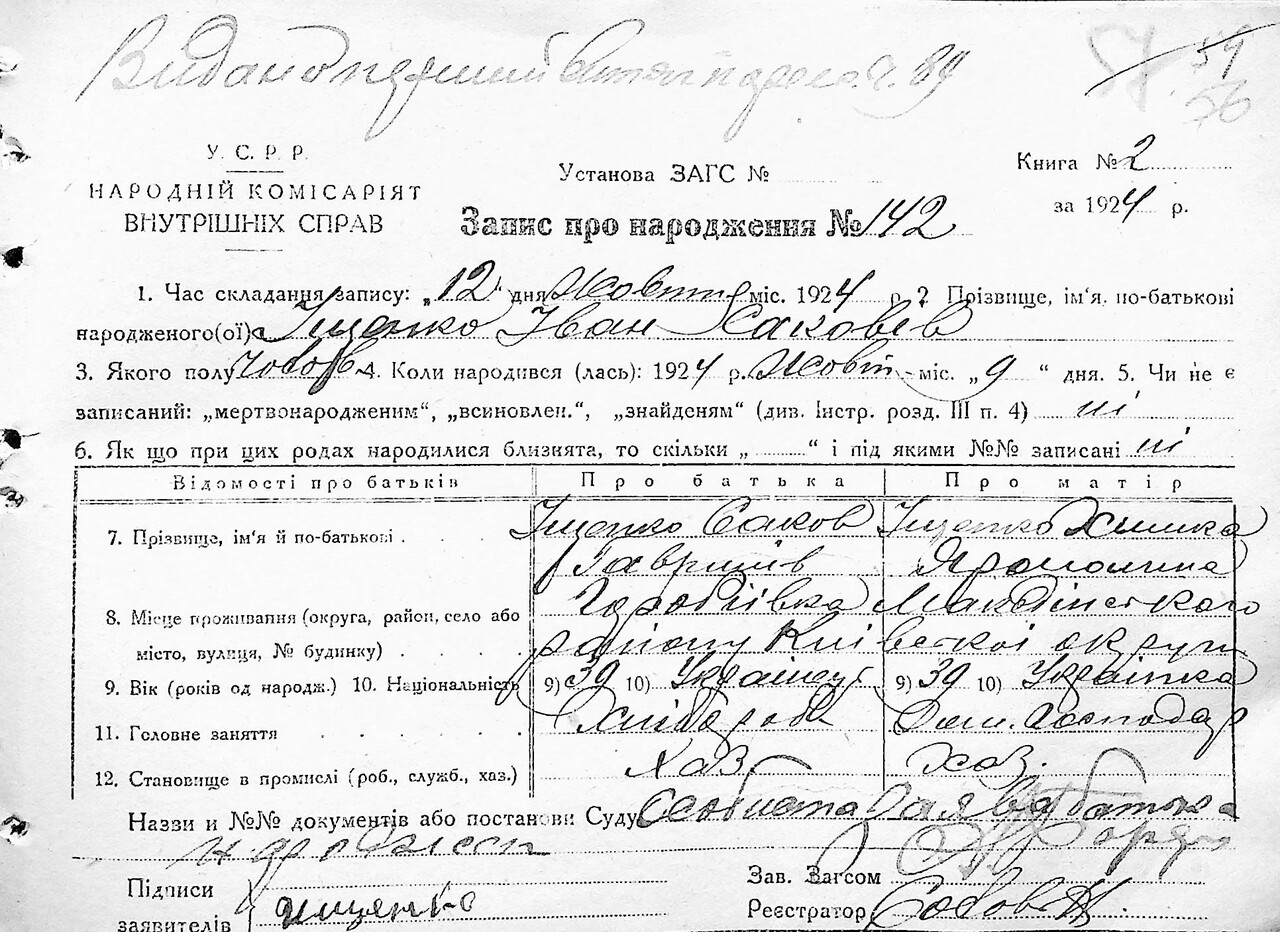 Видано перший витяг 89
57 54
56
У. С. Р. Р.
НАРОДНІЙ КОМІСАРІЯТ
ВНУТРІШНІХ СПРАВ
Установа ЗАГС №
Книга № 2
за 1924 р.
Запис про народження № 142
1. Час складання запису: „12" дня Жовтня міс. 1924 р. 2 Прізвище, ім'я, по-батькові
народженого(ої) Іщенко Іван Саковів
3. Якого полу Чолов. 4. Коли народився (лась): 1924 р. Жовтн міс. „9" дня. 5. Чи не є
записаний: „мертвонародженим", „всиновлен.", „знайденям" (див. Інстр. розд. III п. 4) ні
6. Як що при цих родах народилися близнята, то скільки „ " і під якими №№ записані ні
Відомості про батьків Про батька Про матір
7. Прізвище, ім'я й по-батькові Іщенко Саков Іщенко Химка
Гаврилів
8. Місце проживання (округа, район, село або Макарівського
місто, вулиця, № будинку) району Київської округи
9. Вік (років од народж.) 10. Національність 9) 39 10) Українец 9) 39 10) Українка
11. Головне заняття Хлібороб Дом. Господар
12. Становище в промислі (роб., служб., хаз.) Хаз. Хаз.
Назви и №№ документів або постанови Суду Особиста заява батька
Підписи
заявителів Ищенко
Зав. Загсом
Реєстратор